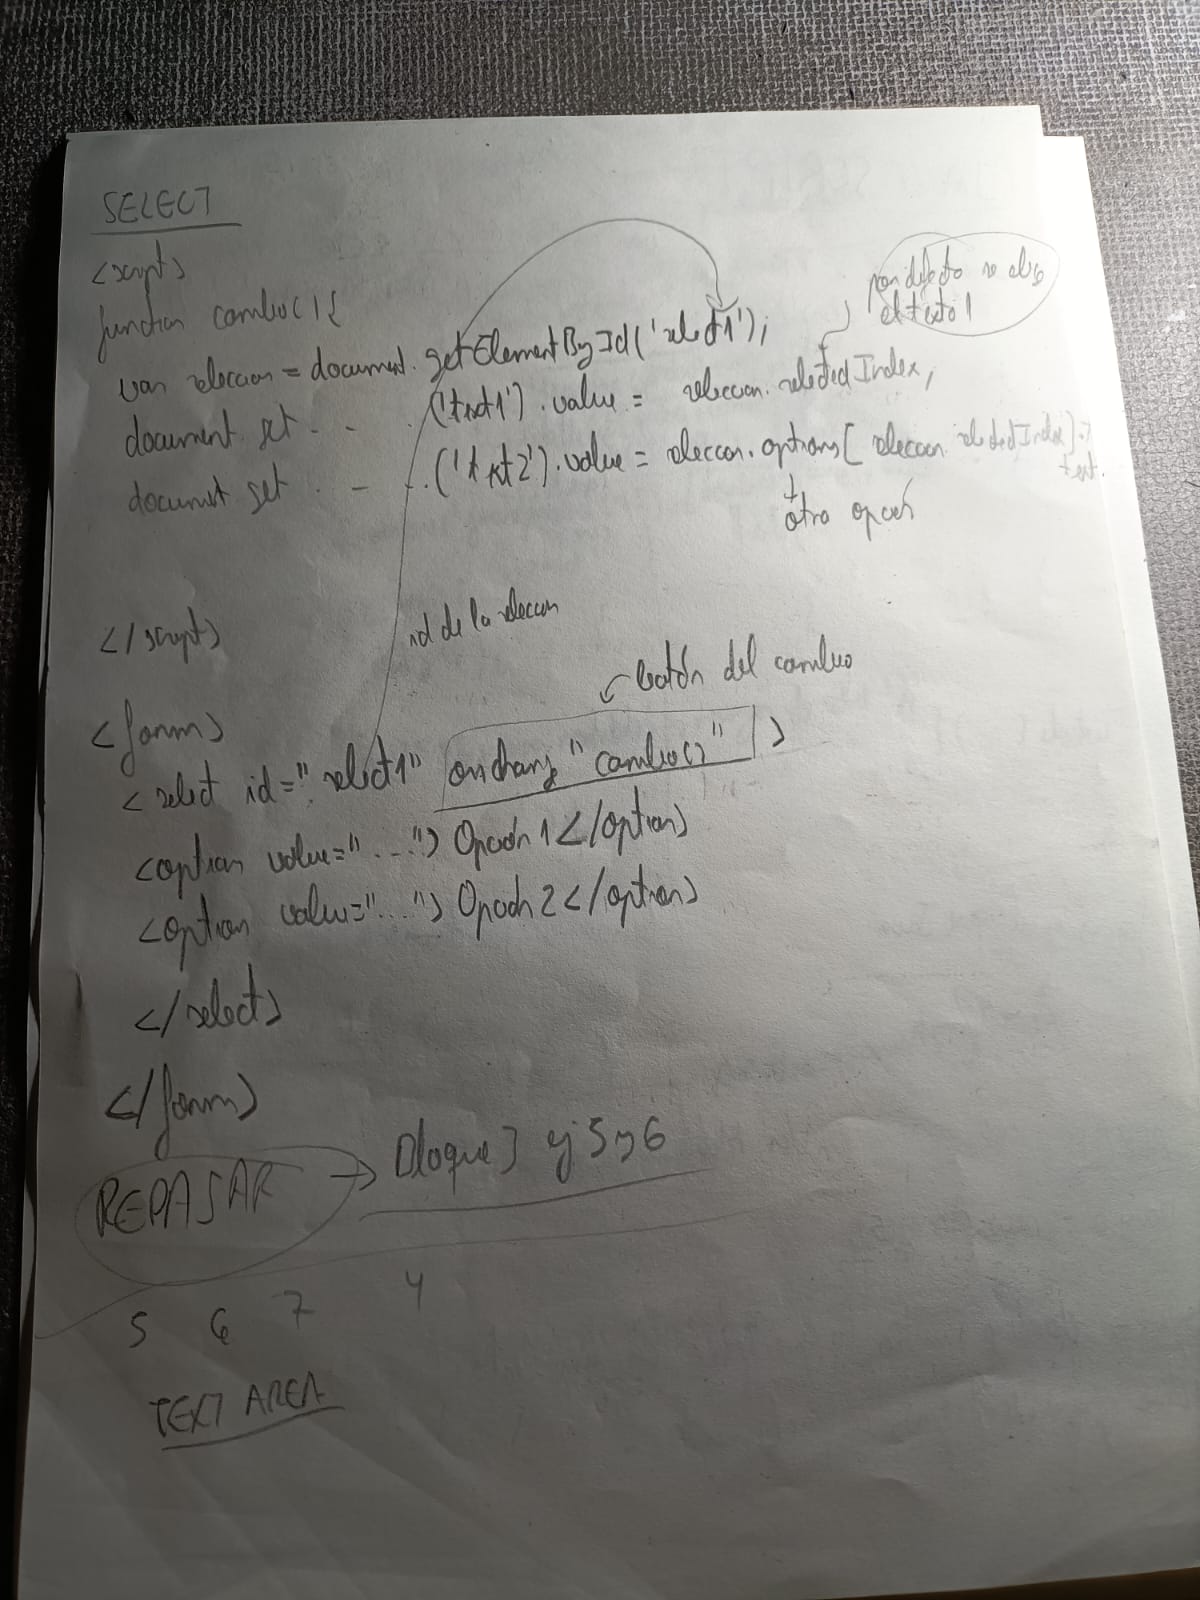 SELECT
<script>
function cambio(){
var seleccion = document.getElementById('select1');
por defecto se elige
el texto 1
document get . . . ('text1').value = seleccion.selectedIndex;
document get . - . .('txt2').value = seleccion.options[seleccion.selectedIndex].
text.
otra opción
</script>
id de la seleccion
botón del cambio
<form>
<select id="select1" onchange "cambio()">
<option value="....">Opción 1</option>
<option value="....">Opción 2</option>
</select>
</form>
REPASAR → Bloque 3 ej 5 y 6
5 6 7 4
TEXT AREA